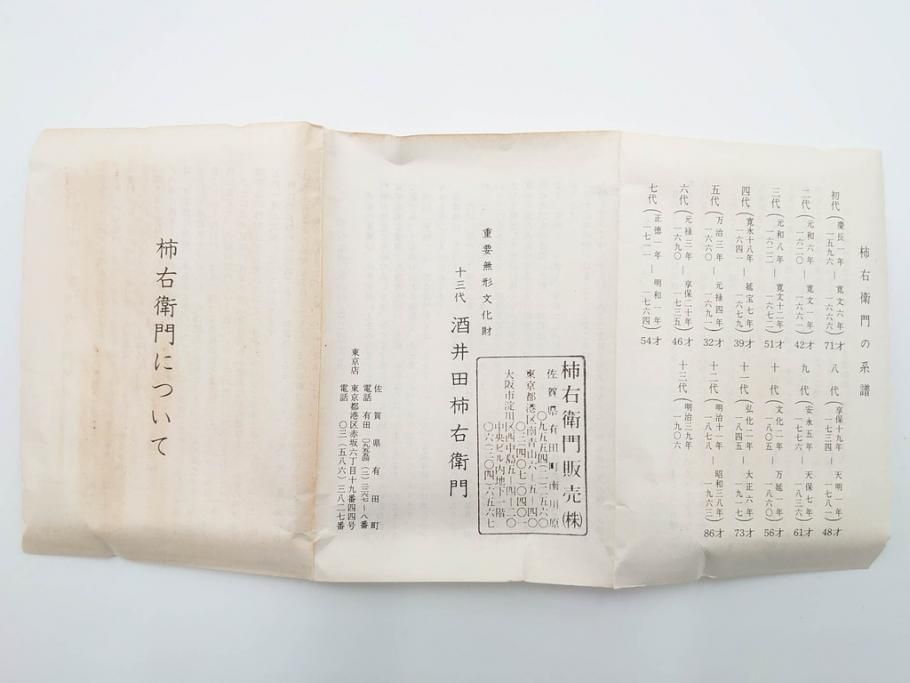 柿右衛門の系譜
初代(慶長一年 一五九六 ― 寛文六年 一六六六)71才
二代(元和六年 一六二〇 ― 寛文一年 一六六一)42才
三代(元和八年 一六二二 ― 寛文十二年 一六七二)51才
四代(寛永十八年 一六四一 ― 延宝七年 一六七九)39才
五代(万治三年 一六六〇 ― 元禄四年 一六九一)32才
六代(元禄三年 一六九〇 ― 享保二十年 一七三五)46才
七代(正徳一年 一七一一 ― 明和一年 一七六四)54才
八代(享保十九年 一七三四 ― 天明一年 一七八一)48才
九代(安永五年 一七七六 ― 天保七年 一八三六)61才
十代(文化二年 一八〇五 ― 万延一年 一八六〇)56才
十一代(弘化二年 一八四五 ― 大正六年 一九一七)73才
十二代(明治十一年 一八七八 ― 昭和三八年 一九六三)86才
十三代(明治三九年 一九〇六
重要無形文化財
十三代 酒井田柿右衛門
佐賀県有田町
電話 有田
東京店 東京都港区赤坂六丁目十九番四四号
電話 〇三(五八六)三八二七番
柿右衛門販売(株)
佐賀県有田町南川原
東京都港区南青山六―五―四〇
大阪市淀川区西中島五―四―二〇
中央ビル内地下一階
柿右衛門について